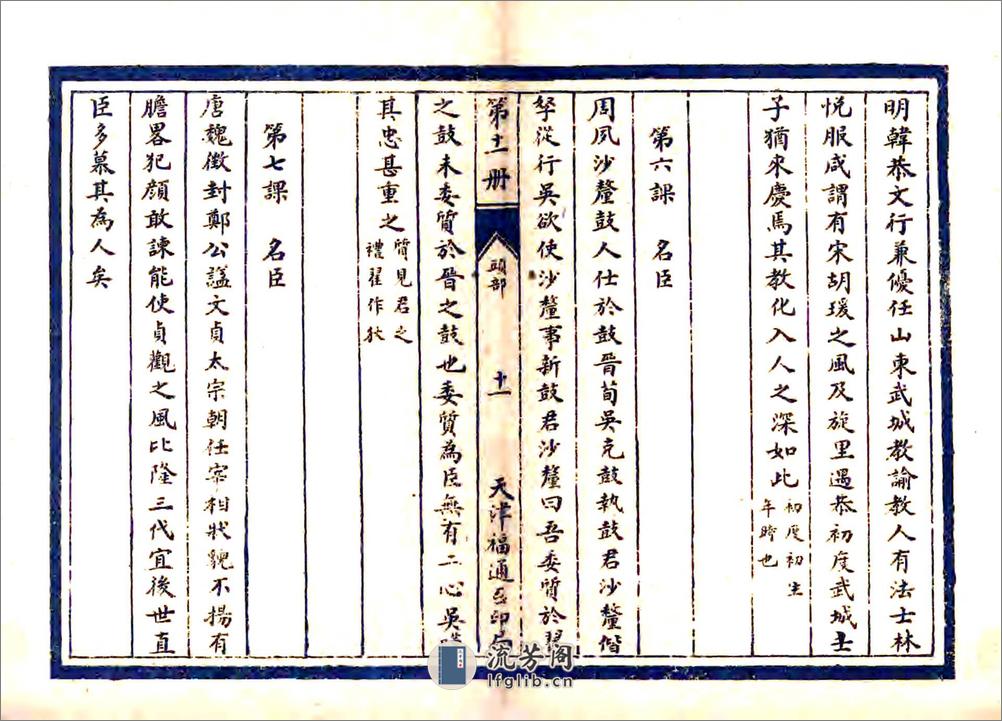 明韓恭文行兼優任山東武城教諭教人有法士林
悅服咸謂有宋胡瑗之風及旋里遇恭初度武城士
子猶來慶焉其教化入人之深如此
初度初生
年時也
第六課 名臣
周夙沙釐鼓人仕於鼓晉荀吳克鼓執鼓君沙釐偕
孥從行吳欲使沙釐事新鼓君沙釐曰吾委質於翟
第十一册 頭部 十一 天津福通石印局
之鼓未委質於晉之鼓也委質為臣無有二心吳
其忠甚重之
質見君之
禮翟作狄
第七課 名臣
唐魏徵封鄭公諡文貞太宗朝任宰相狀貌不揚有
膽畧犯顏敢諫能使貞觀之風比隆三代宜後世直
臣多慕其為人矣
流芳阁
lfglib.cn